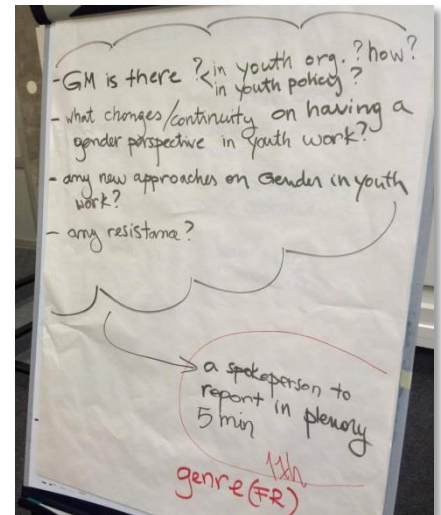 - GM is there ? < in youth org. ? how?
in youth policy ?
- what changes/continuity on having a
gender perspective in youth work?
- any new approaches on Gender in youth
work?
- any resistance?
a spokeperson to
report in plenary
5 min
11h
genre (FR)